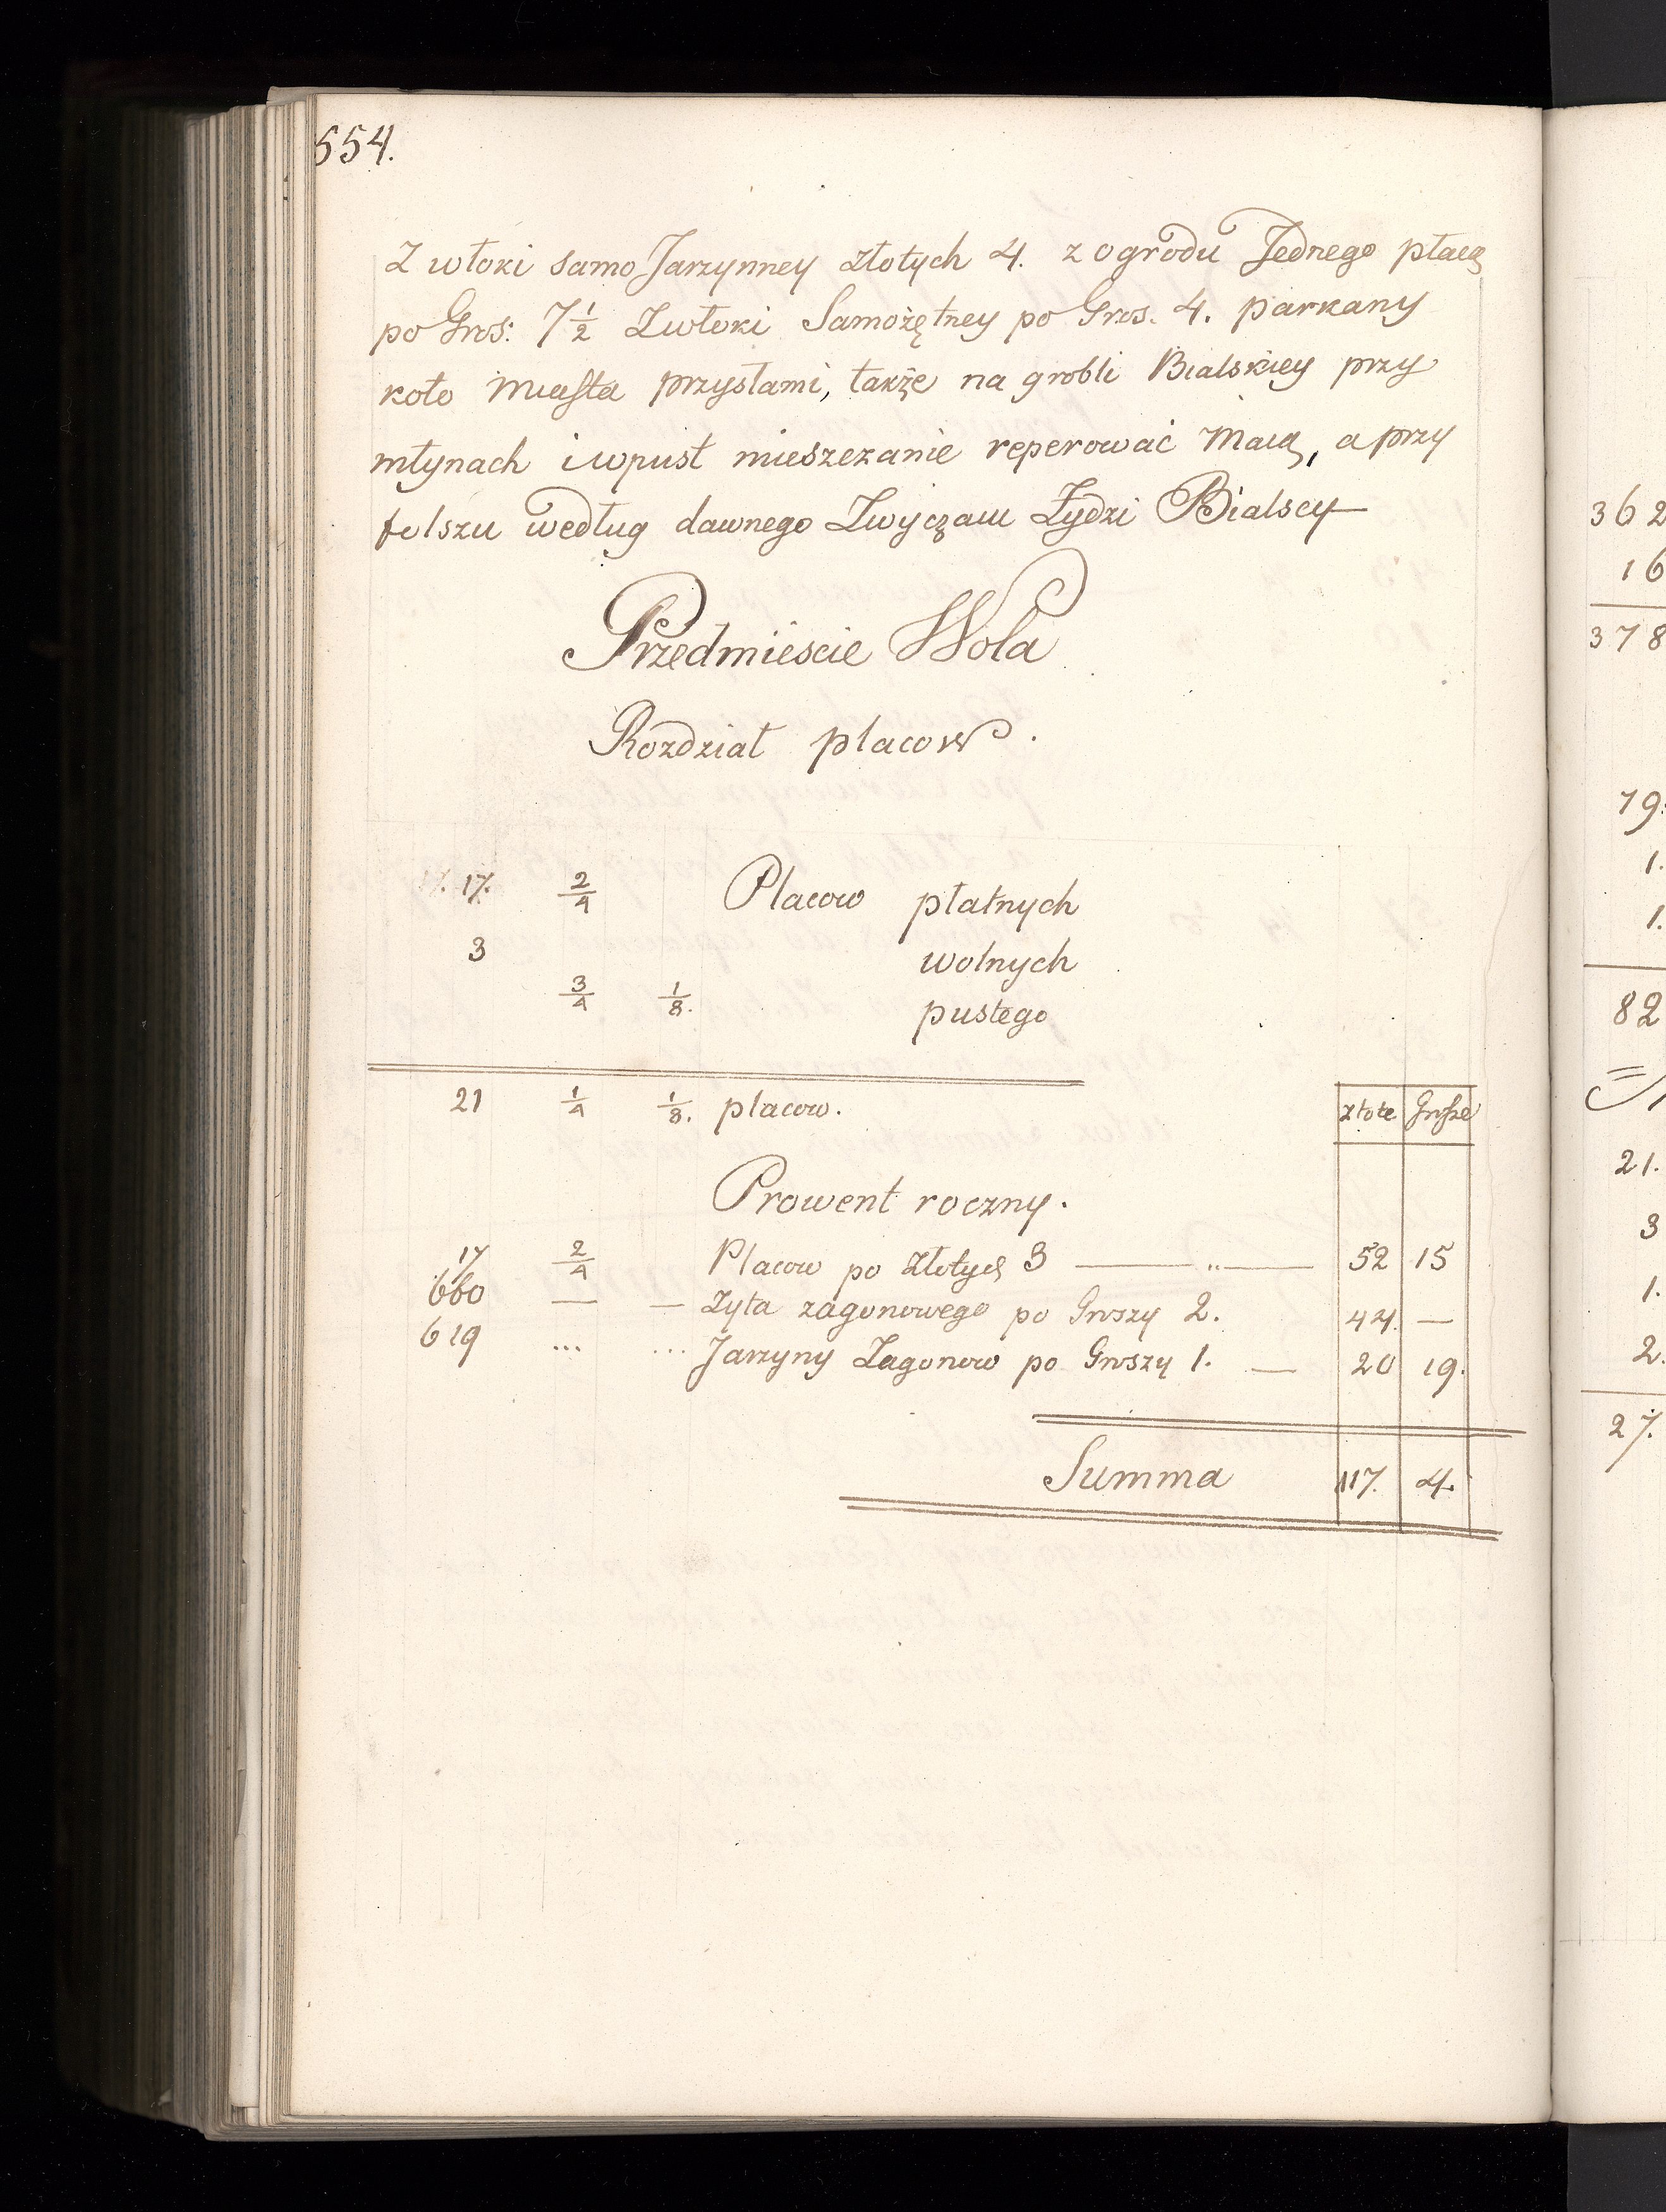 554.
Z włoki samo Jarzynney złotych 4. z ogrodu Jednego płacą
po Gros: 7 1/2 Zwłoki Samożętney po Gros. 4. parkany
koło Miasta przysłami, także na grobli Bialskiey przy
młynach i wpust mieszczanie reperować Maią, a przy
folszu według dawnego Zwyczaiu Żydzi Bialscy
Przedmieście Wola
Rozdział placow.
17. 2/4 Placow płatnych
3 wolnych
3/4 1/8. pustego
21 1/4 1/8. placow. złote Grosze
Prowent roczny.
17 2/4 Placow po Złotych 3 — „ — 52 15
660 — — Zyta zagonowego po Groszy 2. 44. —
619 ... ... Jarzyny Zagonow po Groszy 1. — 20 19.
Summa 117. 4.
362
16
378
79:
1.
1.
82
21.
3
1.
2.
27.